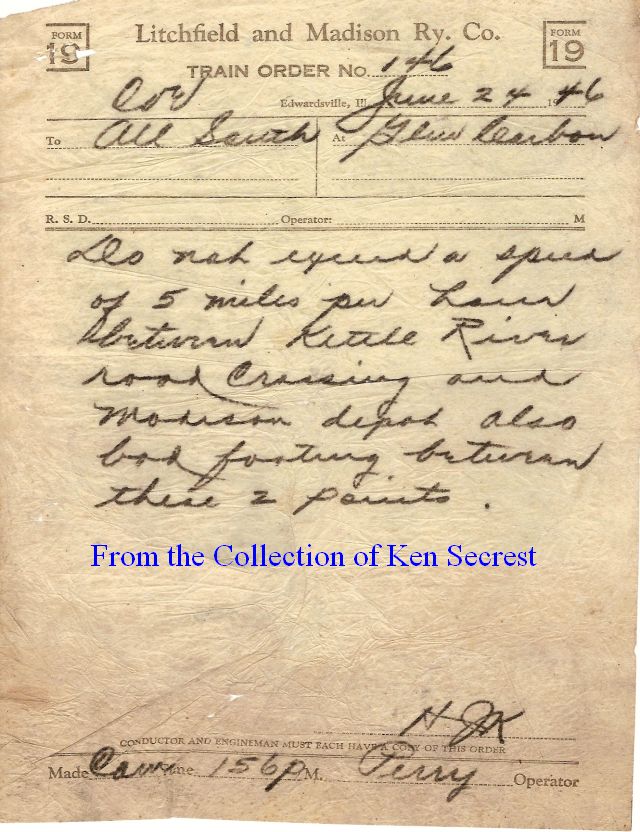 FORM 19 Litchfield and Madison Ry. Co. FORM 19
TRAIN ORDER No. 146
Edwardsville, Ill. June 24 1946
To All South At Glen Carbon
R. S. D. Operator: M
Do not exceed a speed
of 5 miles per hour
between Kettle River
road Crossing and
Madison depot also
bad footing between
these 2 points .
From the Collection of Ken Secrest
HJK
CONDUCTOR AND ENGINEMAN MUST EACH HAVE A COPY OF THIS ORDER
Made Com Time 156p M. Perry Operator